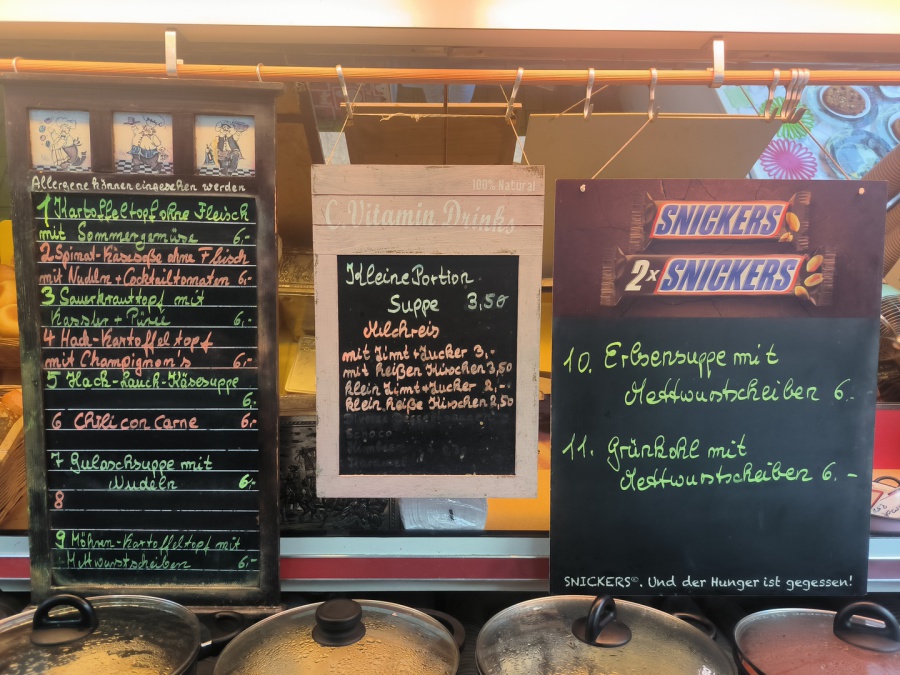 Allergene können eingesehen werden
1 Kartoffeltopf ohne Fleisch
mit Sommergemüse 6,-
2 Spinat-Käsesoße ohne Fleisch
mit Nudeln + Cocktailtomaten 6,-
3 Sauerkrauttopf mit
Kassler + Püree 6,-
4 Hack-Kartoffeltopf
mit Champignon's 6,-
5 Hack-Lauch-Käsesuppe
6.
6 Chili con Carne 6,-
7 Gulaschsuppe mit
Nudeln 6,-
8
9 Möhren-Kartoffeltopf mit
Mettwurstscheiben 6,-
100% Natural
C.Vitamin Drinks
Kleine Portion
Suppe 3,50
Milchreis
mit Zimt+Zucker 3,-
mit heißen Kirschen 3,50
klein Zimt+Zucker 2,-
klein heiße Kirschen 2,50
SNICKERS
2x SNICKERS
10. Erbsensuppe mit
Mettwurstscheiben 6.-
11. Grünkohl mit
Mettwurstscheiben 6.-
SNICKERS®. Und der Hunger ist gegessen!